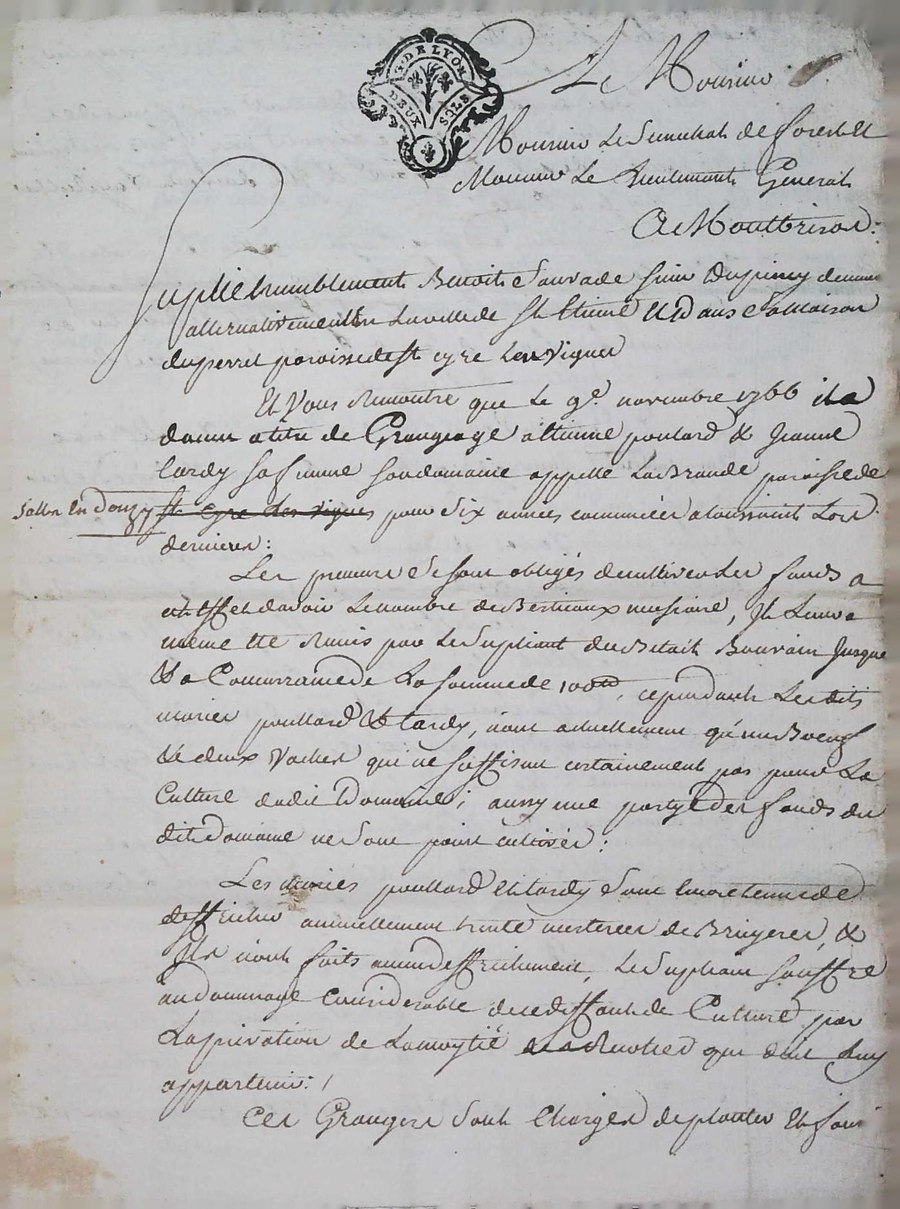 G. DE LYON
DEUX SOLS
A Monsieur
Monsieur Le Senechal de forest &
Monsieur Le Lieutenant General
A Montbrison
Suplie humblement Benoit Sauvade sieur Dupiney demeurant
alternativement en La ville de St Etienne Et Dans Sa Maison
duperret paroisse de St cyre Les Vignes
Et Vous Remontre que Le 9e. novembre 1766 il a
donné a titre de Grangeage a Etienne poulard & Jeanne
tardy sa femme son domaine appellé La Brande paroisse de
Salle En Donzy St Cyre Les Vignes pour Six années commencées a toussaint Lors
dernieres :
Les preneurs Se sont obligés de cultiver Les fonds a
cet Effet d'avoir Le nombre de Bestiaux necessaire, Il Leur a
même été Remis par Le Supliant du Betail Bouvain Jusque
& a Concurrance de La somme de 100, cependant Les dits
mariés poullard & tardy, n'ont actuellement qu'un Boeuf
& deux Vaches qui ne suffisent certainement pas pour La
Culture dudit Domaine ; aussy une partye des fonds du
dit Domaine ne Sont point cultivés :
Les mariés poullard Et tardy Sont Encore tenus de
deffricher annuellement trente mesterées de Bruyeres, &
Ils n'ont faits aucun deffrichement, Le Supliant souffre
un dommage Considerable de ce deffaut de Culture par
La privation de La moytié des Recoltes qui doit Luy
appartenir : /
Ces Grangers Sont Chargés de planter Et faire